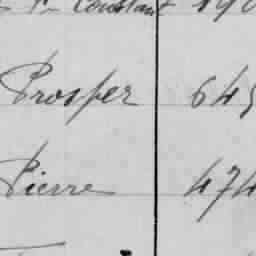 Constant 190
Prosper 645
Pierre 474